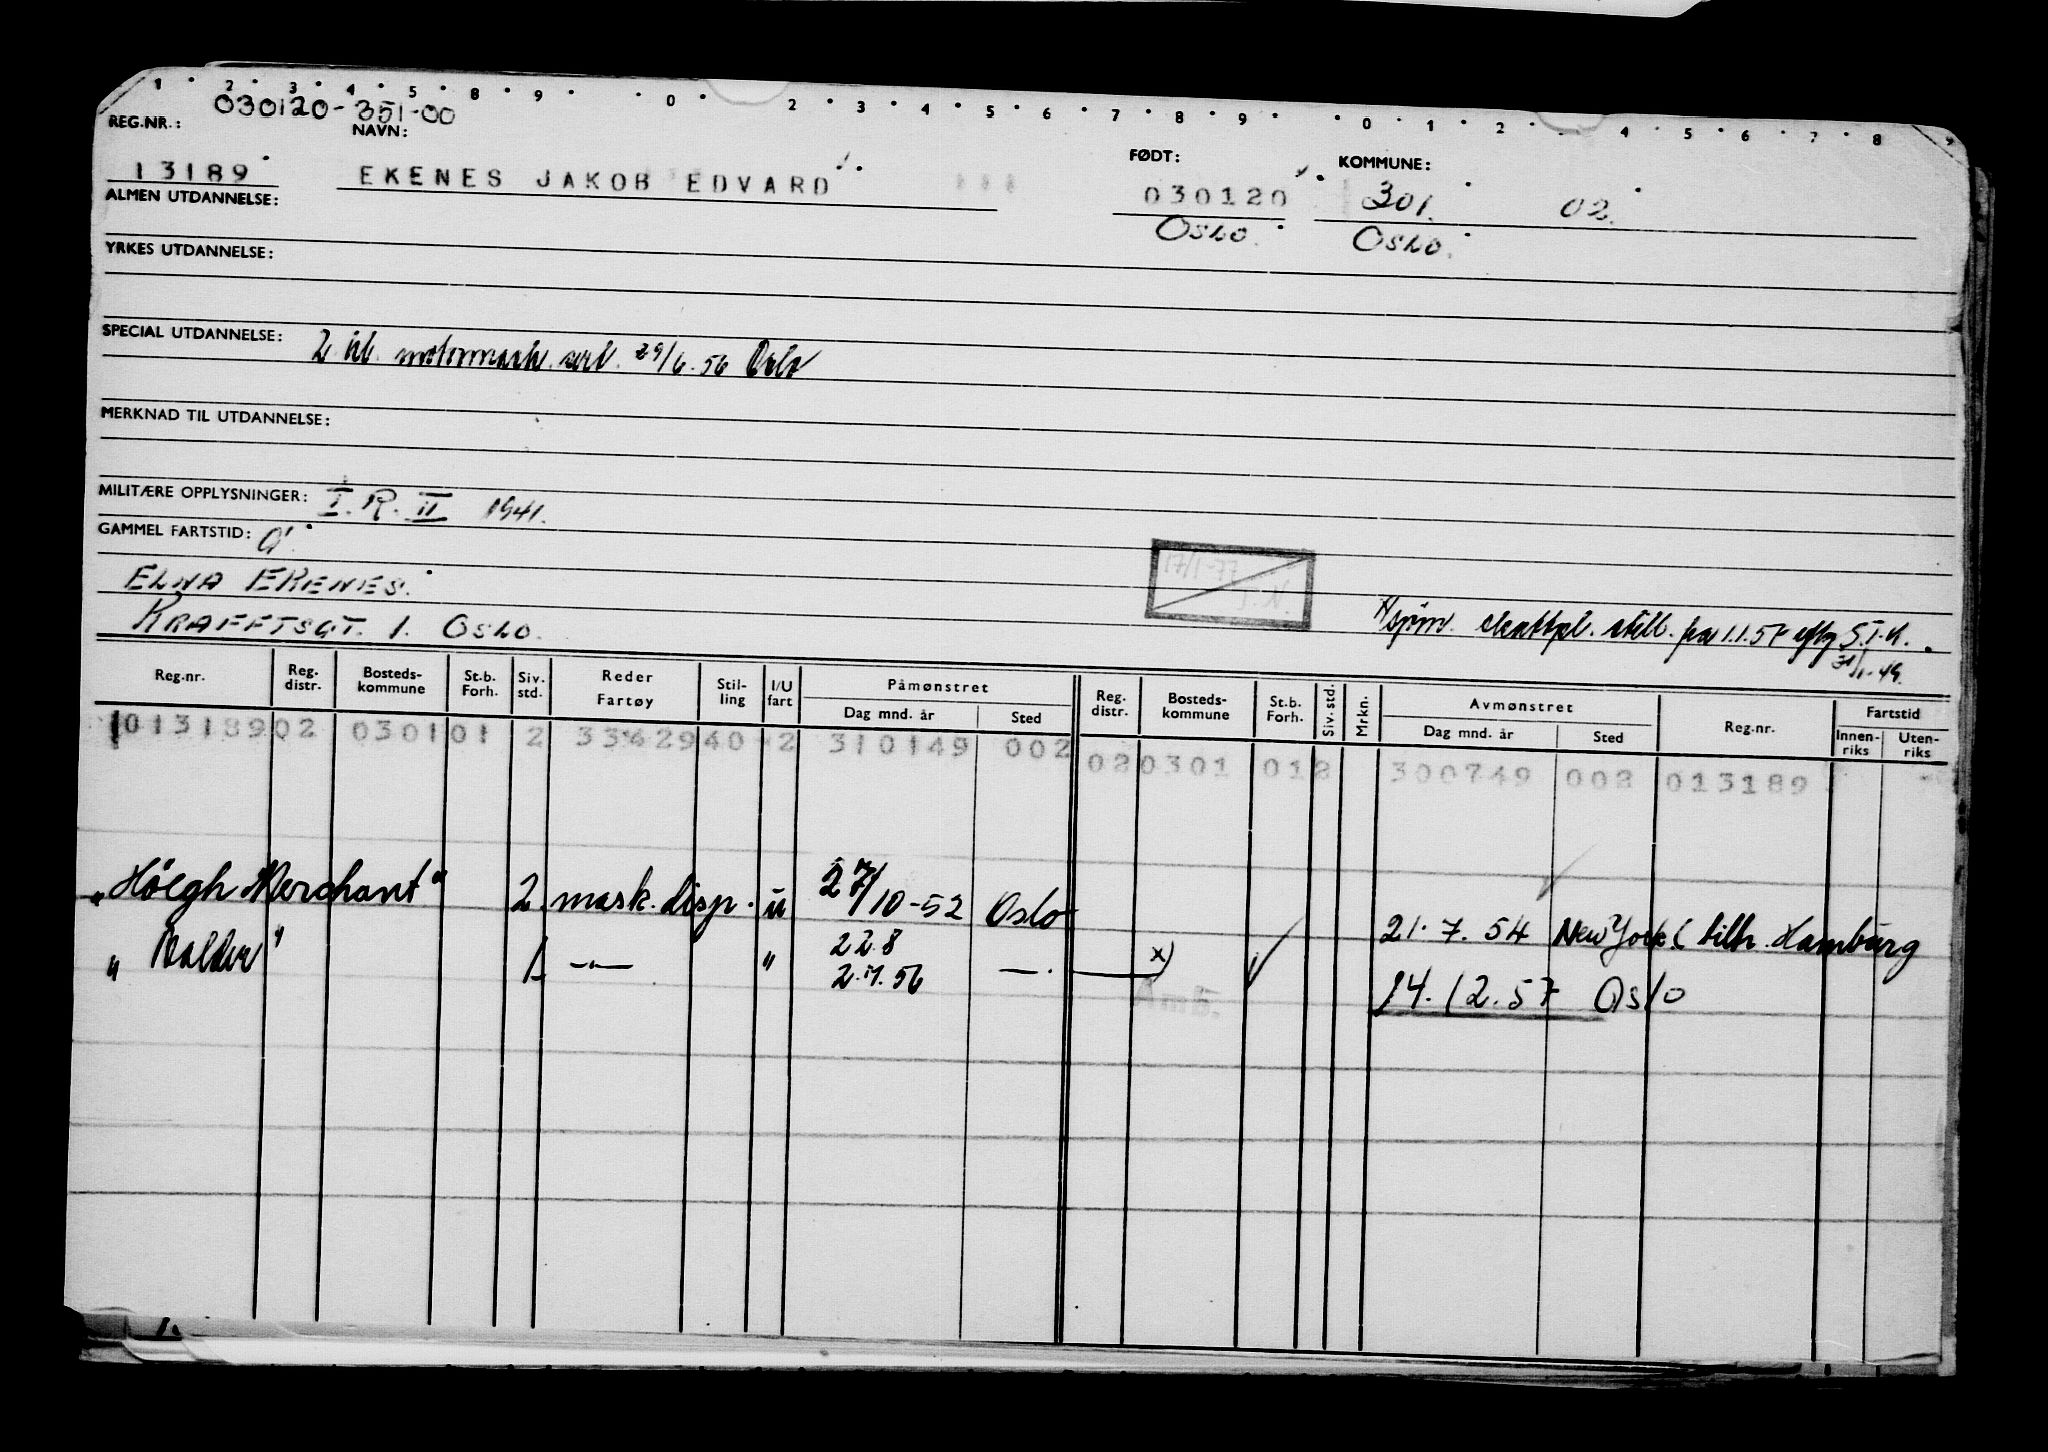 1 2 3 4 5 8 9 0 2 3 4 5 6 7 8 9 0 1 2 4 5 6 7 8 9
030120-351-00
REG.NR.: NAVN: FØDT: KOMMUNE:
13189 EKENES JAKOB EDVARD 030120 301. 02.
Oslo. Oslo.
ALMEN UTDANNELSE:
YRKES UTDANNELSE:
SPECIAL UTDANNELSE: 2. kl. motormask. sert. 29/6.56 Oslo
MERKNAD TIL UTDANNELSE:
MILITÆRE OPPLYSNINGER: I.R. II 1941.
GAMMEL FARTSTID: 0
ELNA EKENES.
KRAFFTSGT. 1. OSLO.
17/1-77
sjøm. skattpl. still. fra 1.1.57 S.I.K.
Reg.nr. Reg. distr. Bosteds-kommune St.b. Forh. Siv. std. Reder Fartøy Stil-ling I/U fart Påmønstret Dag mnd. år Sted Reg. distr. Bosteds-kommune St.b. Forh. Siv. std. Mrkn. Avmønstret Dag mnd. år Sted Reg.nr. Fartstid Innen-riks Uten-riks
013189 02 0301 01 2 33429 40 2 310149 002 02 0301 01 2 300749 002 013189
"Höegh Merchant" 2. mask. disp. u 27/10-52 Oslo 21.7.54 New York (tilh. Hamburg
"Balder" 1. -"- " 22.8 2.7.56 -"- x) 14.12.57 Oslo
Amb.